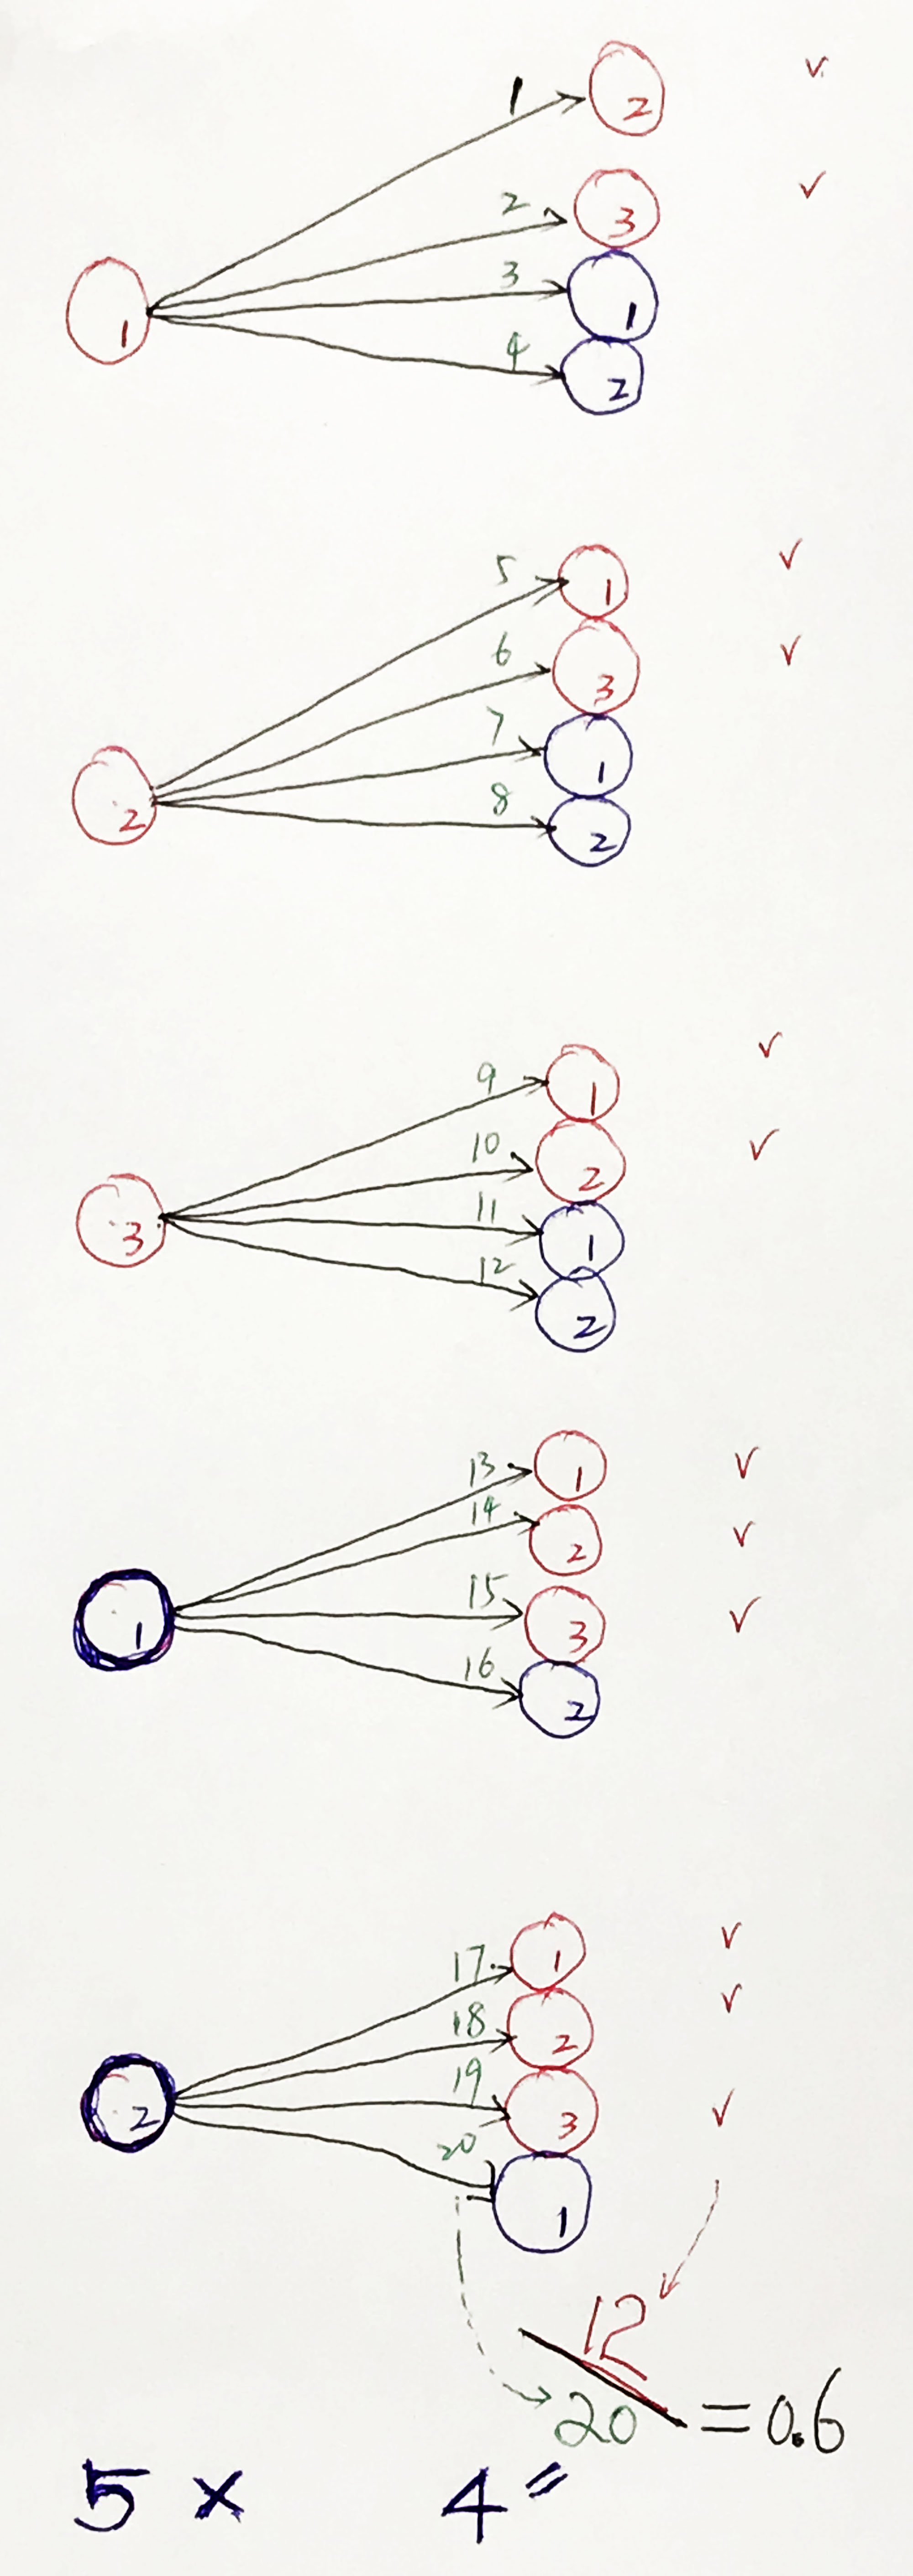 1 2 ✓
2 3 ✓
3 1
1
4 2
5 1 ✓
6 3 ✓
7 1
2
8 2
9 1 ✓
10 2 ✓
3
11 1
12 2
13 1 ✓
14 2 ✓
1
15 3 ✓
16 2
17 1 ✓
18 2 ✓
2
19 3 ✓
20 1
12
20 = 0.6
5 × 4 =